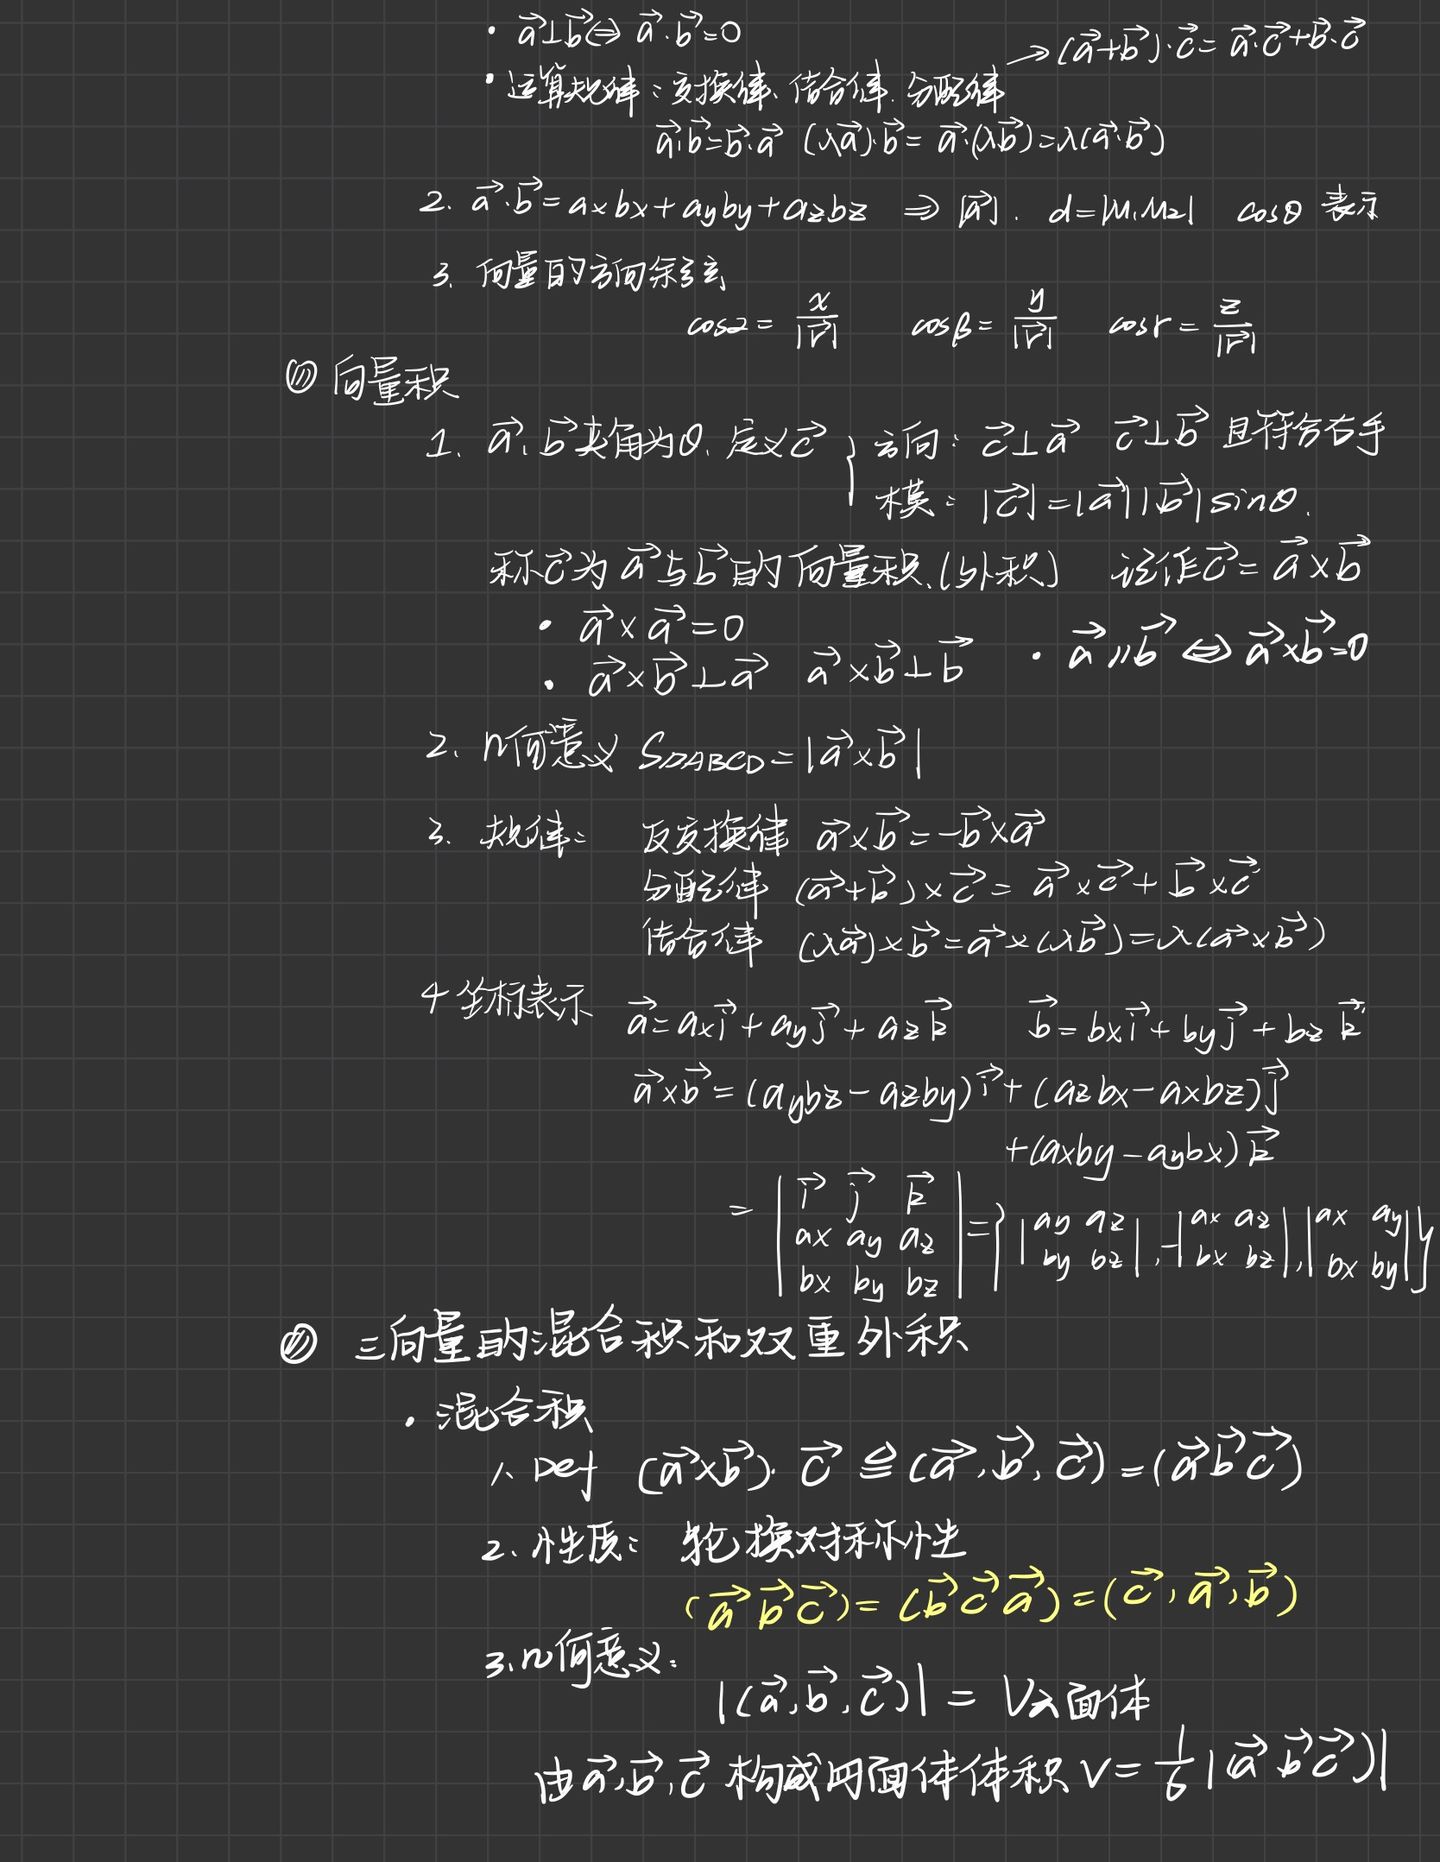 · a⃗⊥b⃗ ⇔ a⃗·b⃗=0
· 运算规律：交换律、结合律、分配律 → (a⃗+b⃗)·c⃗=a⃗·c⃗+b⃗·c⃗
a⃗·b⃗=b⃗·a⃗ (λa⃗)·b⃗=a⃗·(λb⃗)=λ(a⃗·b⃗)
2. a⃗·b⃗=axbx+ayby+azbz ⇒ |a⃗|. d=|M₁M₂| cosθ 表示
3. 向量的方向余弦
cosα=x/|r⃗| cosβ=y/|r⃗| cosγ=z/|r⃗|
向量积
1. a⃗, b⃗夹角为θ, 定义c⃗ { 方向：c⃗⊥a⃗ c⃗⊥b⃗ 且符合右手
模：|c⃗|=|a⃗||b⃗|sinθ.
称c⃗为a⃗与b⃗的向量积.(外积) 记作c⃗=a⃗×b⃗
· a⃗×a⃗=0
· a⃗×b⃗⊥a⃗ a⃗×b⃗⊥b⃗ · a⃗∥b⃗ ⇔ a⃗×b⃗=0
2. 几何意义 S▱ABCD=|a⃗×b⃗|
3. 规律： 反交换律 a⃗×b⃗=-b⃗×a⃗
分配律 (a⃗+b⃗)×c⃗=a⃗×c⃗+b⃗×c⃗
结合律 (λa⃗)×b⃗=a⃗×(λb⃗)=λ(a⃗×b⃗)
4 坐标表示 a⃗=axi⃗+ayj⃗+azk⃗ b⃗=bxi⃗+byj⃗+bzk⃗
a⃗×b⃗=(aybz-azby)i⃗+(azbx-axbz)j⃗
+(axby-aybx)k⃗
= | i⃗ j⃗ k⃗ | = { | ay az | , -| ax az | , | ax ay | }
| ax ay az | | by bz | | bx bz | | bx by |
| bx by bz |
三向量的混合积和双重外积
· 混合积
1. Def (a⃗×b⃗)·c⃗ ≜ (a⃗,b⃗,c⃗)=(a⃗b⃗c⃗)
2. 性质：轮换对称性
(a⃗b⃗c⃗)=(b⃗c⃗a⃗)=(c⃗,a⃗,b⃗)
3. 几何意义：
|(a⃗,b⃗,c⃗)|=V六面体
由a⃗,b⃗,c⃗构成四面体体积V=1/6|(a⃗b⃗c⃗)|